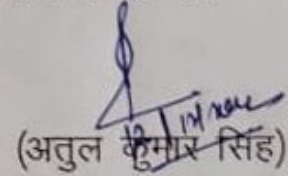 (अतुल कुमार सिंह)